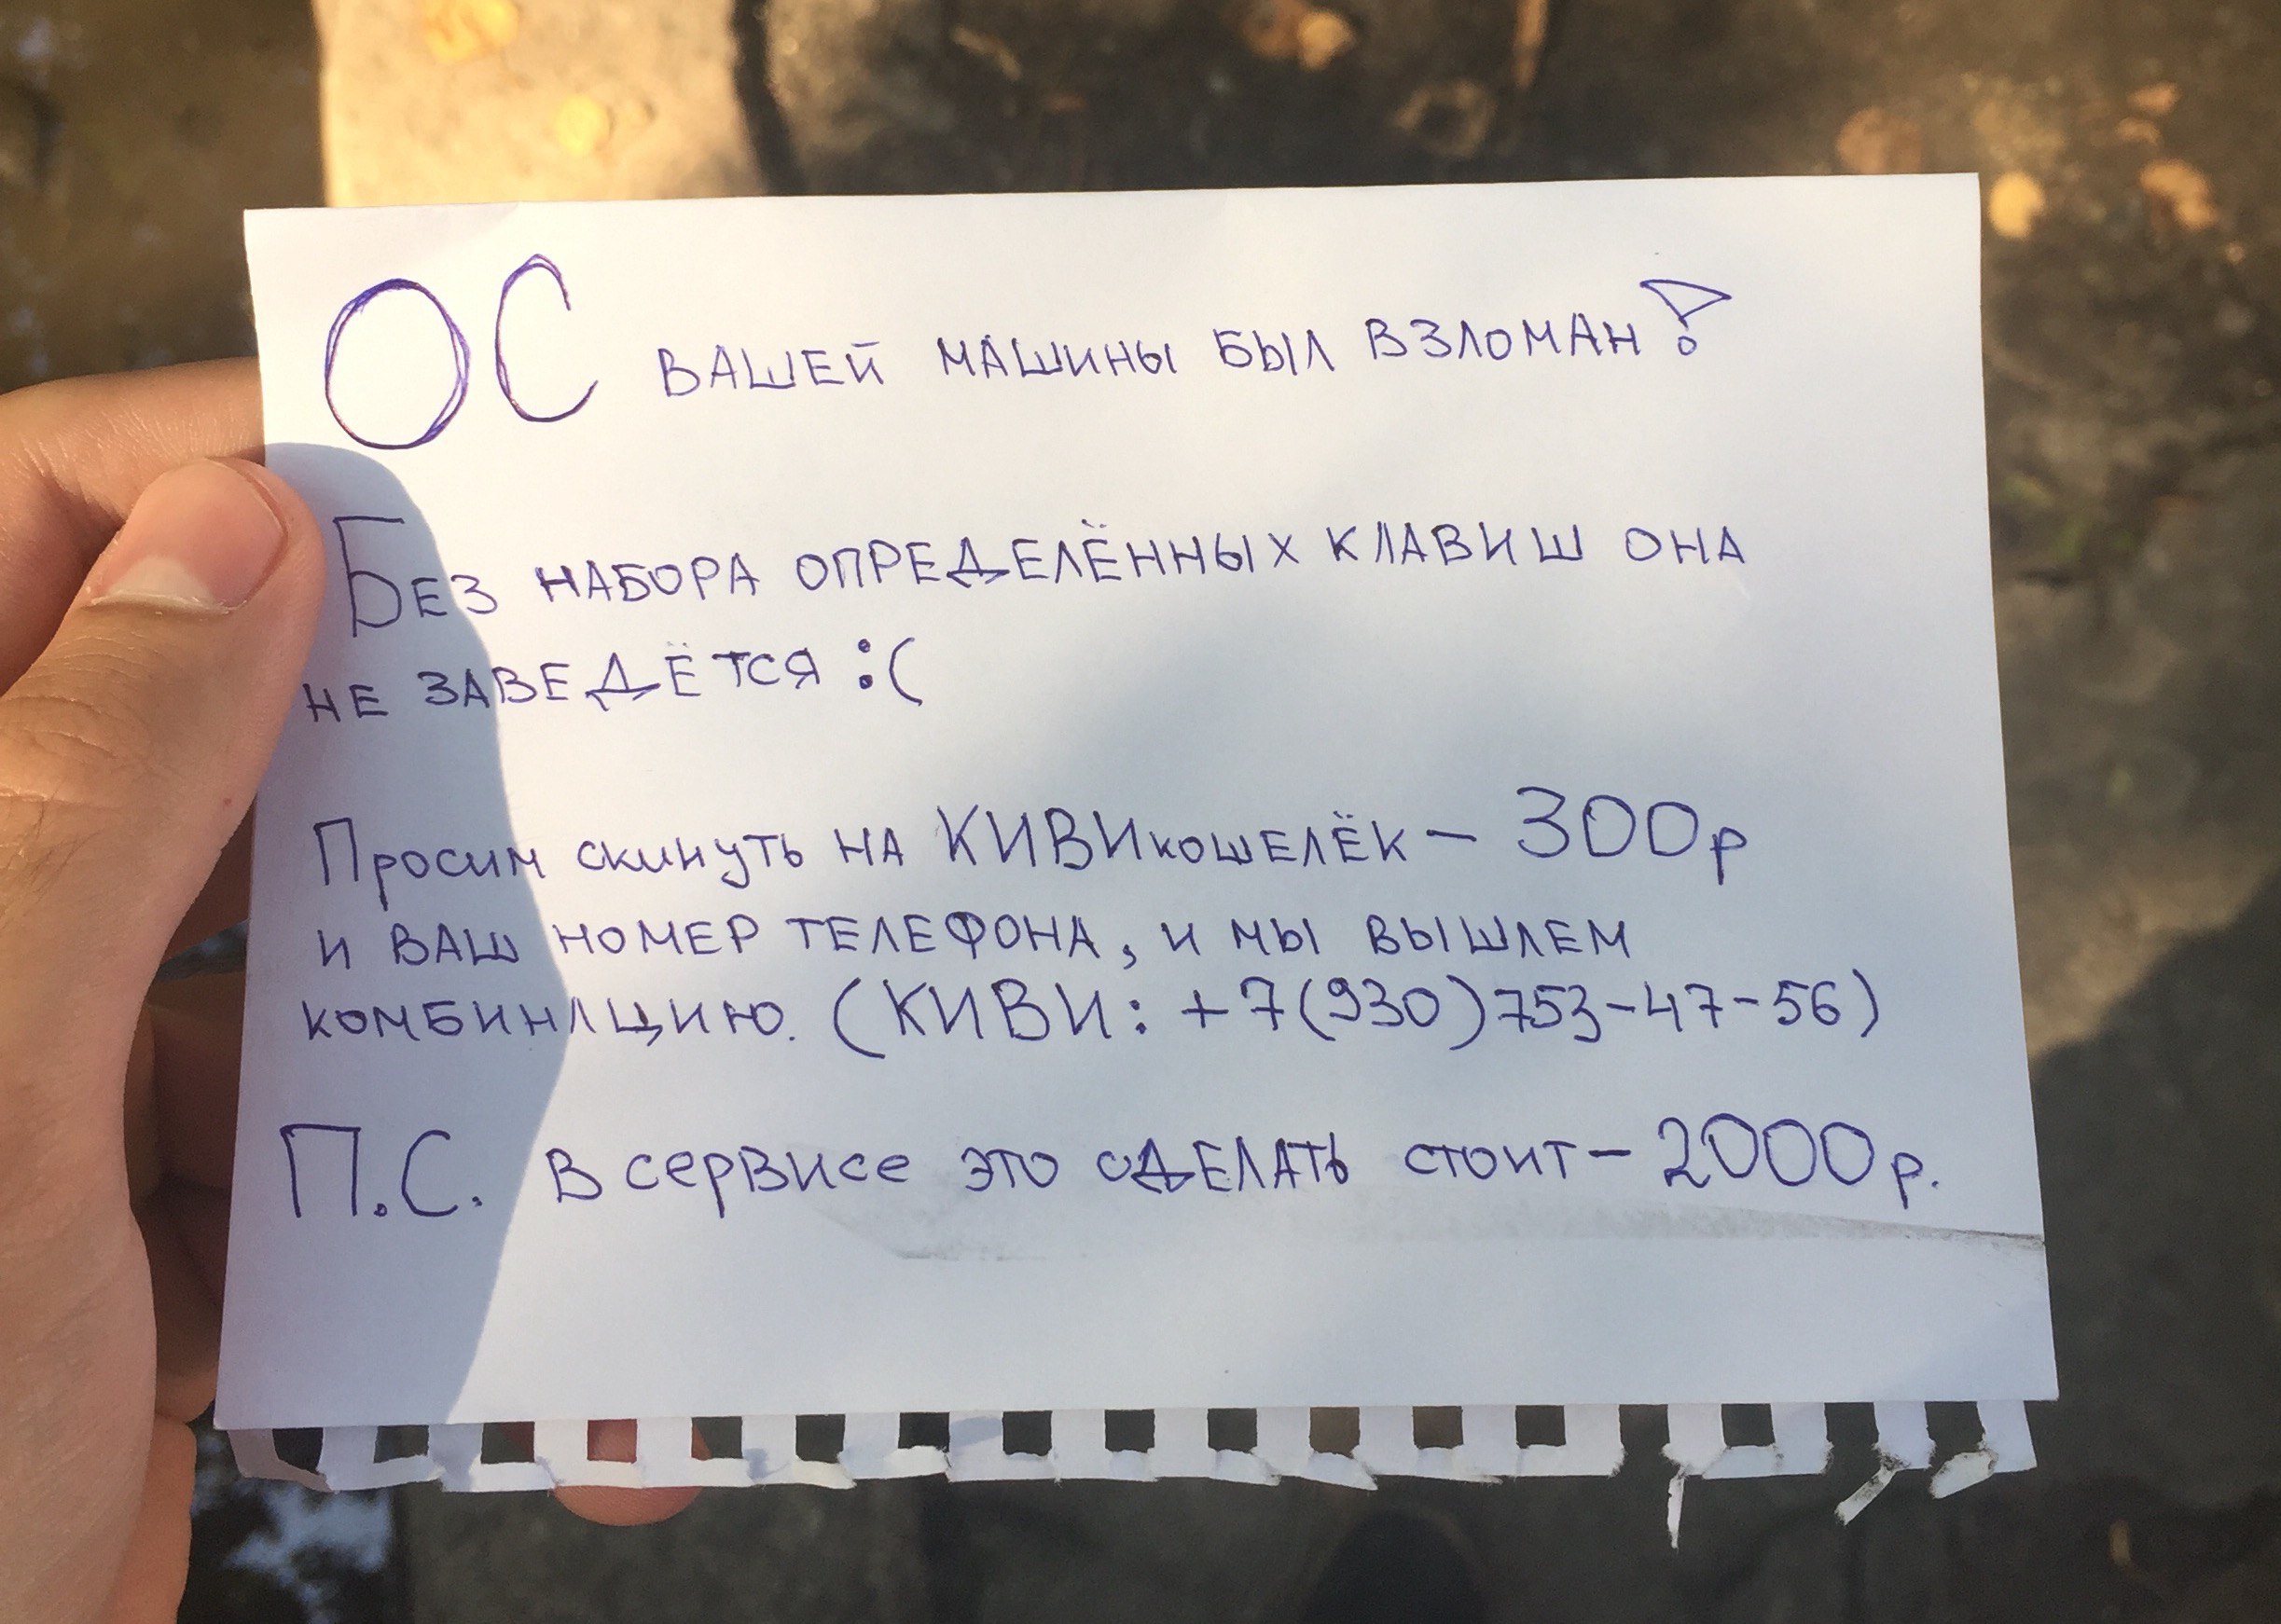 ОС ВАШЕЙ МАШИНЫ БЫЛ ВЗЛОМАН!
БЕЗ НАБОРА ОПРЕДЕЛЁННЫХ КЛАВИШ ОНА
НЕ ЗАВЕДЁТСЯ :(
Просим скинуть НА КИВИкошелёк – 300р
И ВАШ НОМЕР ТЕЛЕФОНА, И МЫ ВЫШЛЕМ
КОМБИНАЦИЮ. (КИВИ: +7(930)753-47-56)
П.С. В сервисе это сДЕЛАТЬ стоит – 2000р.